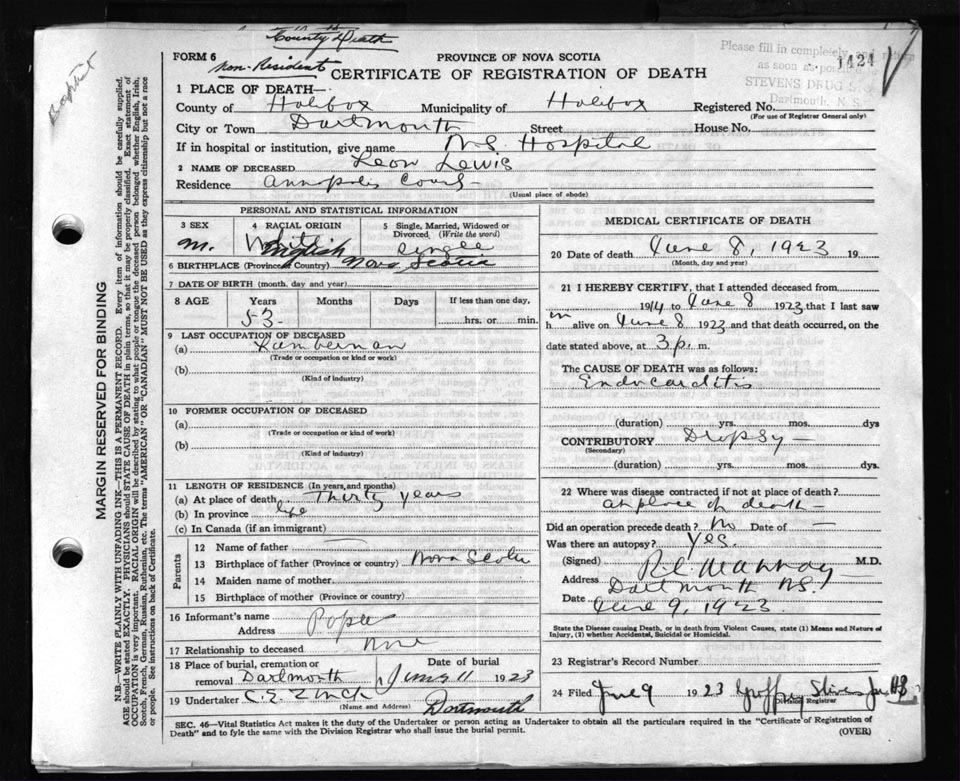 County Death
FORM 6
PROVINCE OF NOVA SCOTIA
Please fill in completely and return
as soon as possible
1424
STEVENS DRUG
Dartmouth, N. S.
Non-Resident
CERTIFICATE OF REGISTRATION OF DEATH
Baptist
1 PLACE OF DEATH—
County of Halifax Municipality of Halifax Registered No.
(For use of Registrar General only)
City or Town Dartmouth Street House No.
If in hospital or institution, give name N.S. Hospital
2 NAME OF DECEASED Leon Lewis
Residence Annapolis County
(Usual place of abode)
PERSONAL AND STATISTICAL INFORMATION
3 SEX 4 RACIAL ORIGIN 5 Single, Married, Widowed or Divorced (Write the word)
M. White English Single
6 BIRTHPLACE (Province or Country) Nova Scotia
7 DATE OF BIRTH (month, day and year)
8 AGE Years Months Days If less than one day,
53 hrs. or min.
9 LAST OCCUPATION OF DECEASED
(a) Lumberman
(Trade or occupation or kind or work)
(b)
(Kind of industry)
10 FORMER OCCUPATION OF DECEASED
(a)
(Trade or occupation or kind of work)
(b)
(Kind of industry)
11 LENGTH OF RESIDENCE (In years, and months)
(a) At place of death Thirty years
(b) In province life
(c) In Canada (if an immigrant)
Parents
12 Name of father
13 Birthplace of father (Province or country) Nova Scotia
14 Maiden name of mother
15 Birthplace of mother (Province or country)
16 Informant's name
Address
17 Relationship to deceased none
18 Place of burial, cremation or removal Dartmouth
Date of burial
June 11 1923
19 Undertaker C.E. Zinck
(Name and Address) Dartmouth
MEDICAL CERTIFICATE OF DEATH
20 Date of death June 8, 1923 19
(Month, day and year)
21 I HEREBY CERTIFY, that I attended deceased from
1914 to June 8 1923 that I last saw
h im alive on June 8 1923 and that death occurred, on the
date stated above, at 3 p. m.
The CAUSE OF DEATH was as follows:
Endocarditis
(duration) yrs. mos. dys
CONTRIBUTORY Dropsy —
(Secondary)
(duration) yrs. mos. dys.
22 Where was disease contracted if not at place of death?
At place of death —
Did an operation precede death? No Date of —
Was there an autopsy? Yes.
(Signed) M.D.
Address Dartmouth N.S.
Date June 9, 1923
State the Disease causing Death, or in death from Violent Causes, state (1) Means and Nature of
Injury, (2) whether Accidental, Suicidal or Homicidal.
23 Registrar's Record Number
24 Filed June 9 1923
Division Registrar
SEC. 46—Vital Statistics Act makes it the duty of the Undertaker or person acting as Undertaker to obtain all the particulars required in the "Certificate of Registration of
Death" and to fyle the same with the Division Registrar who shall issue the burial permit.
(OVER)
MARGIN RESERVED FOR BINDING
N.B.—WRITE PLAINLY WITH UNFADING INK—THIS IS A PERMANENT RECORD. Every item of information should be carefully supplied.
AGE should be stated EXACTLY. PHYSICIANS should STATE CAUSE OF DEATH in plain terms, so that it may be properly classified. Exact statement of
OCCUPATION is very important. RACIAL ORIGIN will be described by stating to what people or tongue the deceased person belonged whether English, Irish,
Scotch, French, German, Russian, Ruthenian, etc. The terms "AMERICAN" OR "CANADIAN" MUST NOT BE USED as they express citizenship but not a race
or people. See instructions on back of Certificate.